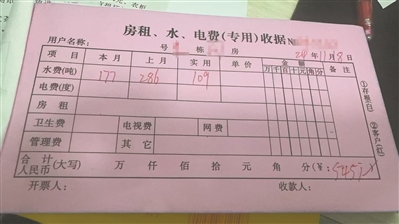 房租、水、电费(专用)收据№
用户名称： 号 栋 房 24年11月8日
项目 本月 上月 实用 单价 金额 备注
万千百十元角分
水费(吨) 177 286 109
电费(度)
房 租
卫生费 电视费 网费
管理费 其它
合计人民币(大写) 万 仟 佰 拾 元 角 分(¥: 545
开票人： 收款人：
①存根(白) ②客户(红)